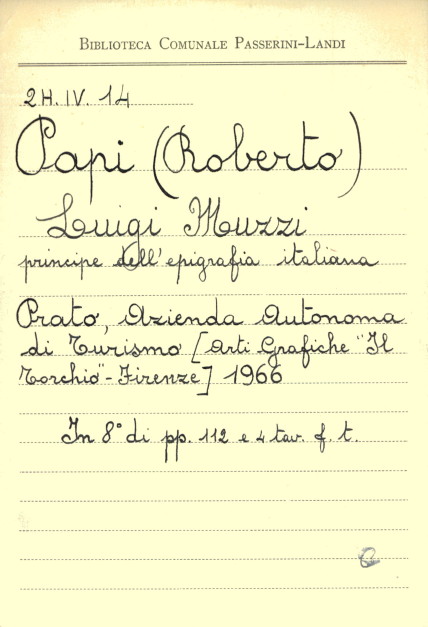 BIBLIOTECA COMUNALE PASSERINI-LANDI
2H. IV. 14
Papi (Roberto)
Luigi Muzzi
principe dell'epigrafia italiana
Prato, Azienda Autonoma
di Turismo [Arti Grafiche "Il
Torchio"-Firenze] 1966
In 8° di pp. 112 e 4 tav. f. t.